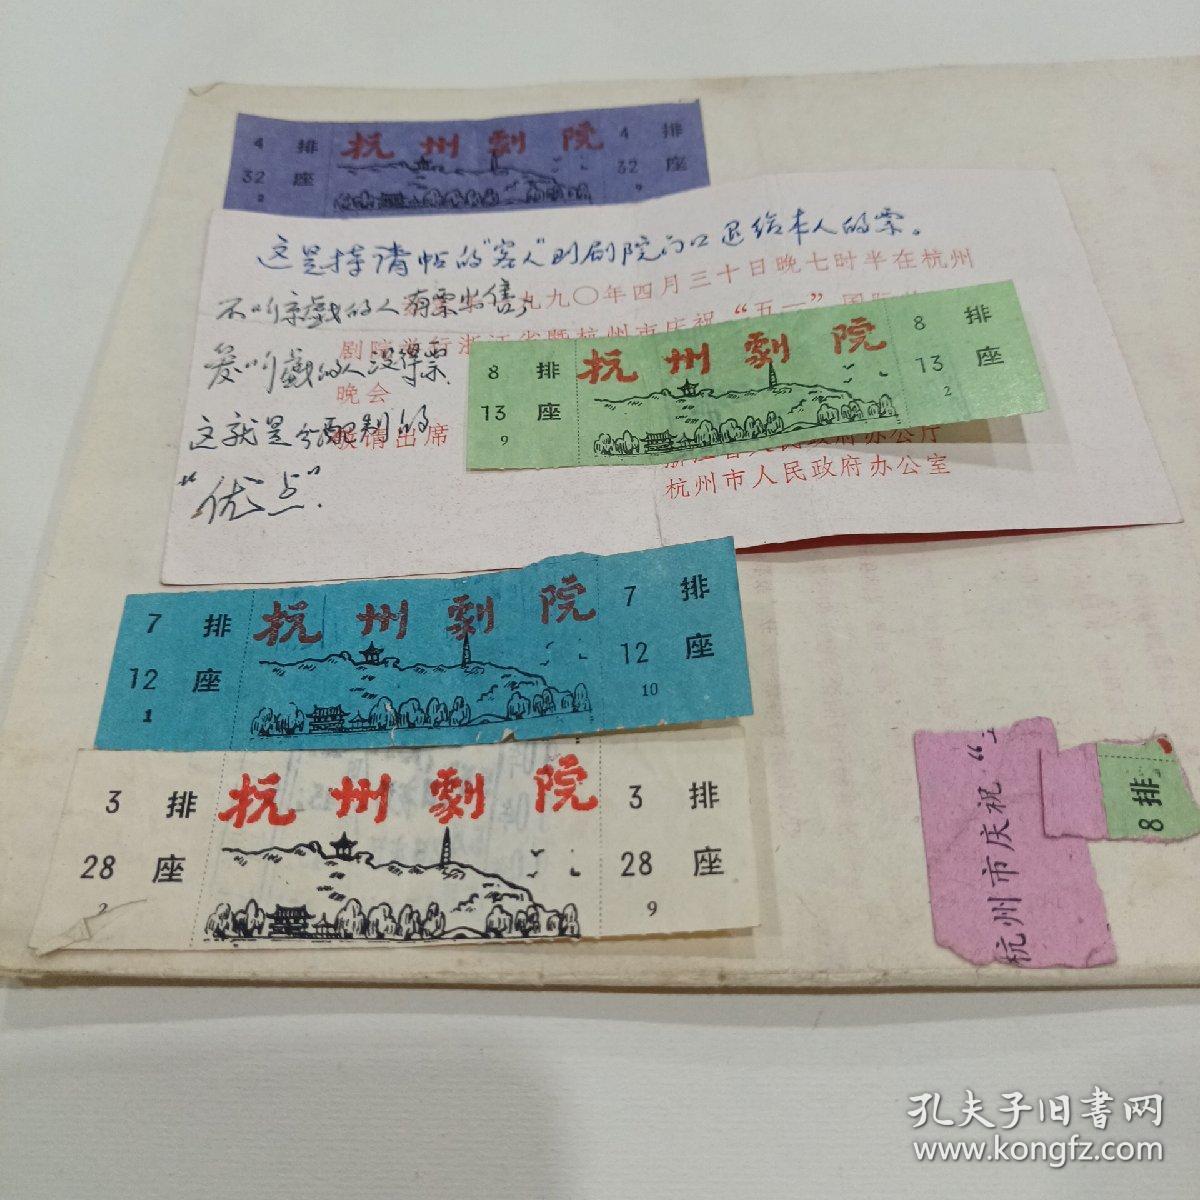 4 排 杭州劇院 4 排
32 座 32 座
9
这是持请帖的"客人"到剧院门口退给本人的票。
不听京戏的人有票出售,
爱听戏的人没得票.
这就是分配制的
"优点".
九九〇年四月三十日晚七时半在杭州
剧院举行浙江省暨杭州市庆祝"五一"国际
晚会
敬请出席
浙江省人民政府办公厅
杭州市人民政府办公室
8 排 杭州劇院 8 排
13 座 13 座
9 2
7 排 杭州劇院 7 排
12 座 12 座
1 10
3 排 杭州劇院 3 排
28 座 28 座
2 9
杭州市庆祝"
8排
孔夫子旧书网
www.kongfz.com